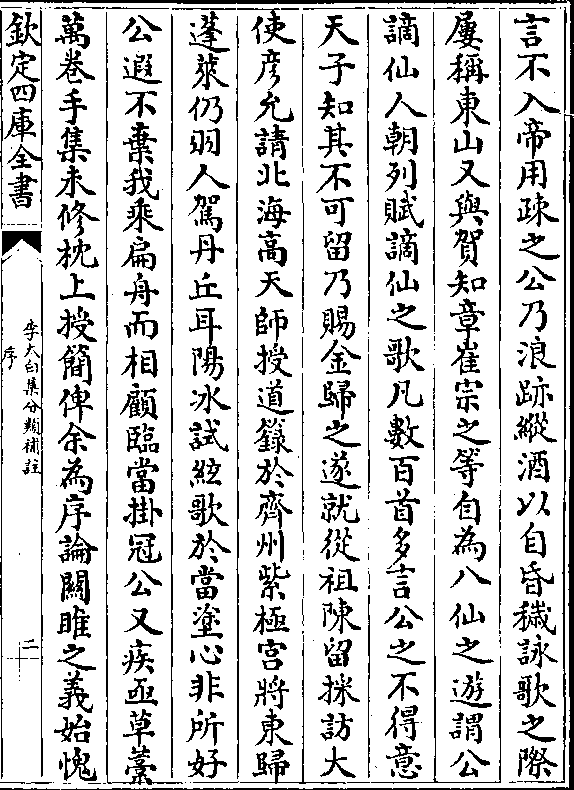 言不入帝用疎之公乃浪跡縱酒以自昏穢詠歌之際
屢稱東山又與賀知章崔宗之等自為八仙之遊謂公
謫仙人朝列賦謫仙之歌凡數百首多言公之不得意
天子知其不可留乃賜金歸之遂就從祖陳留採訪大
使彦允請北海高天師授道籙於齊州紫極宮將東歸
蓬萊仍羽人駕丹丘耳陽冰試絃歌於當塗心非所好
公遐不棄我乘扁舟而相顧臨當掛冠公又疾亟草藁
萬卷手集未修枕上授簡俾余為序論關雎之義始愧
欽定四庫全書
李太白集分類補註
序
二